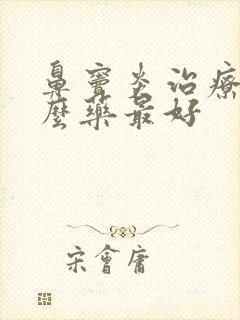 鼻竇炎治療
麼藥最好
宋會庸